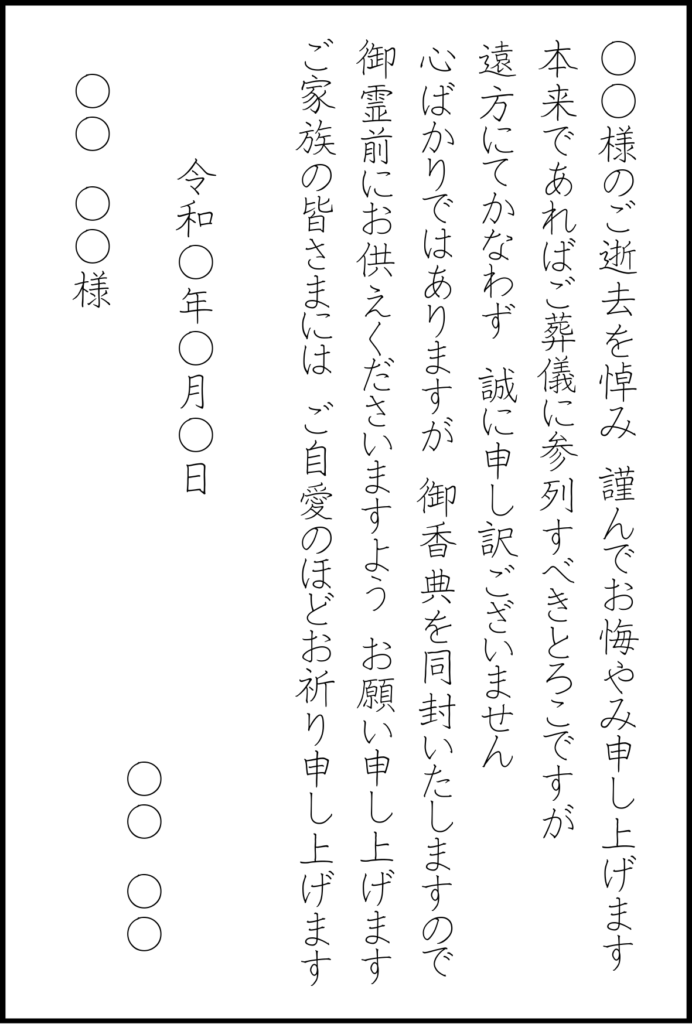 〇〇様のご逝去を悼み 謹んでお悔やみ申し上げます
本来であればご葬儀に参列すべきとろこですが
遠方にてかなわず 誠に申し訳ございません
心ばかりではありますが 御香典を同封いたしますので
御霊前にお供えくださいますよう お願い申し上げます
ご家族の皆さまには ご自愛のほどお祈り申し上げます
令和〇年〇月〇日
〇〇 〇〇
〇〇 〇〇様